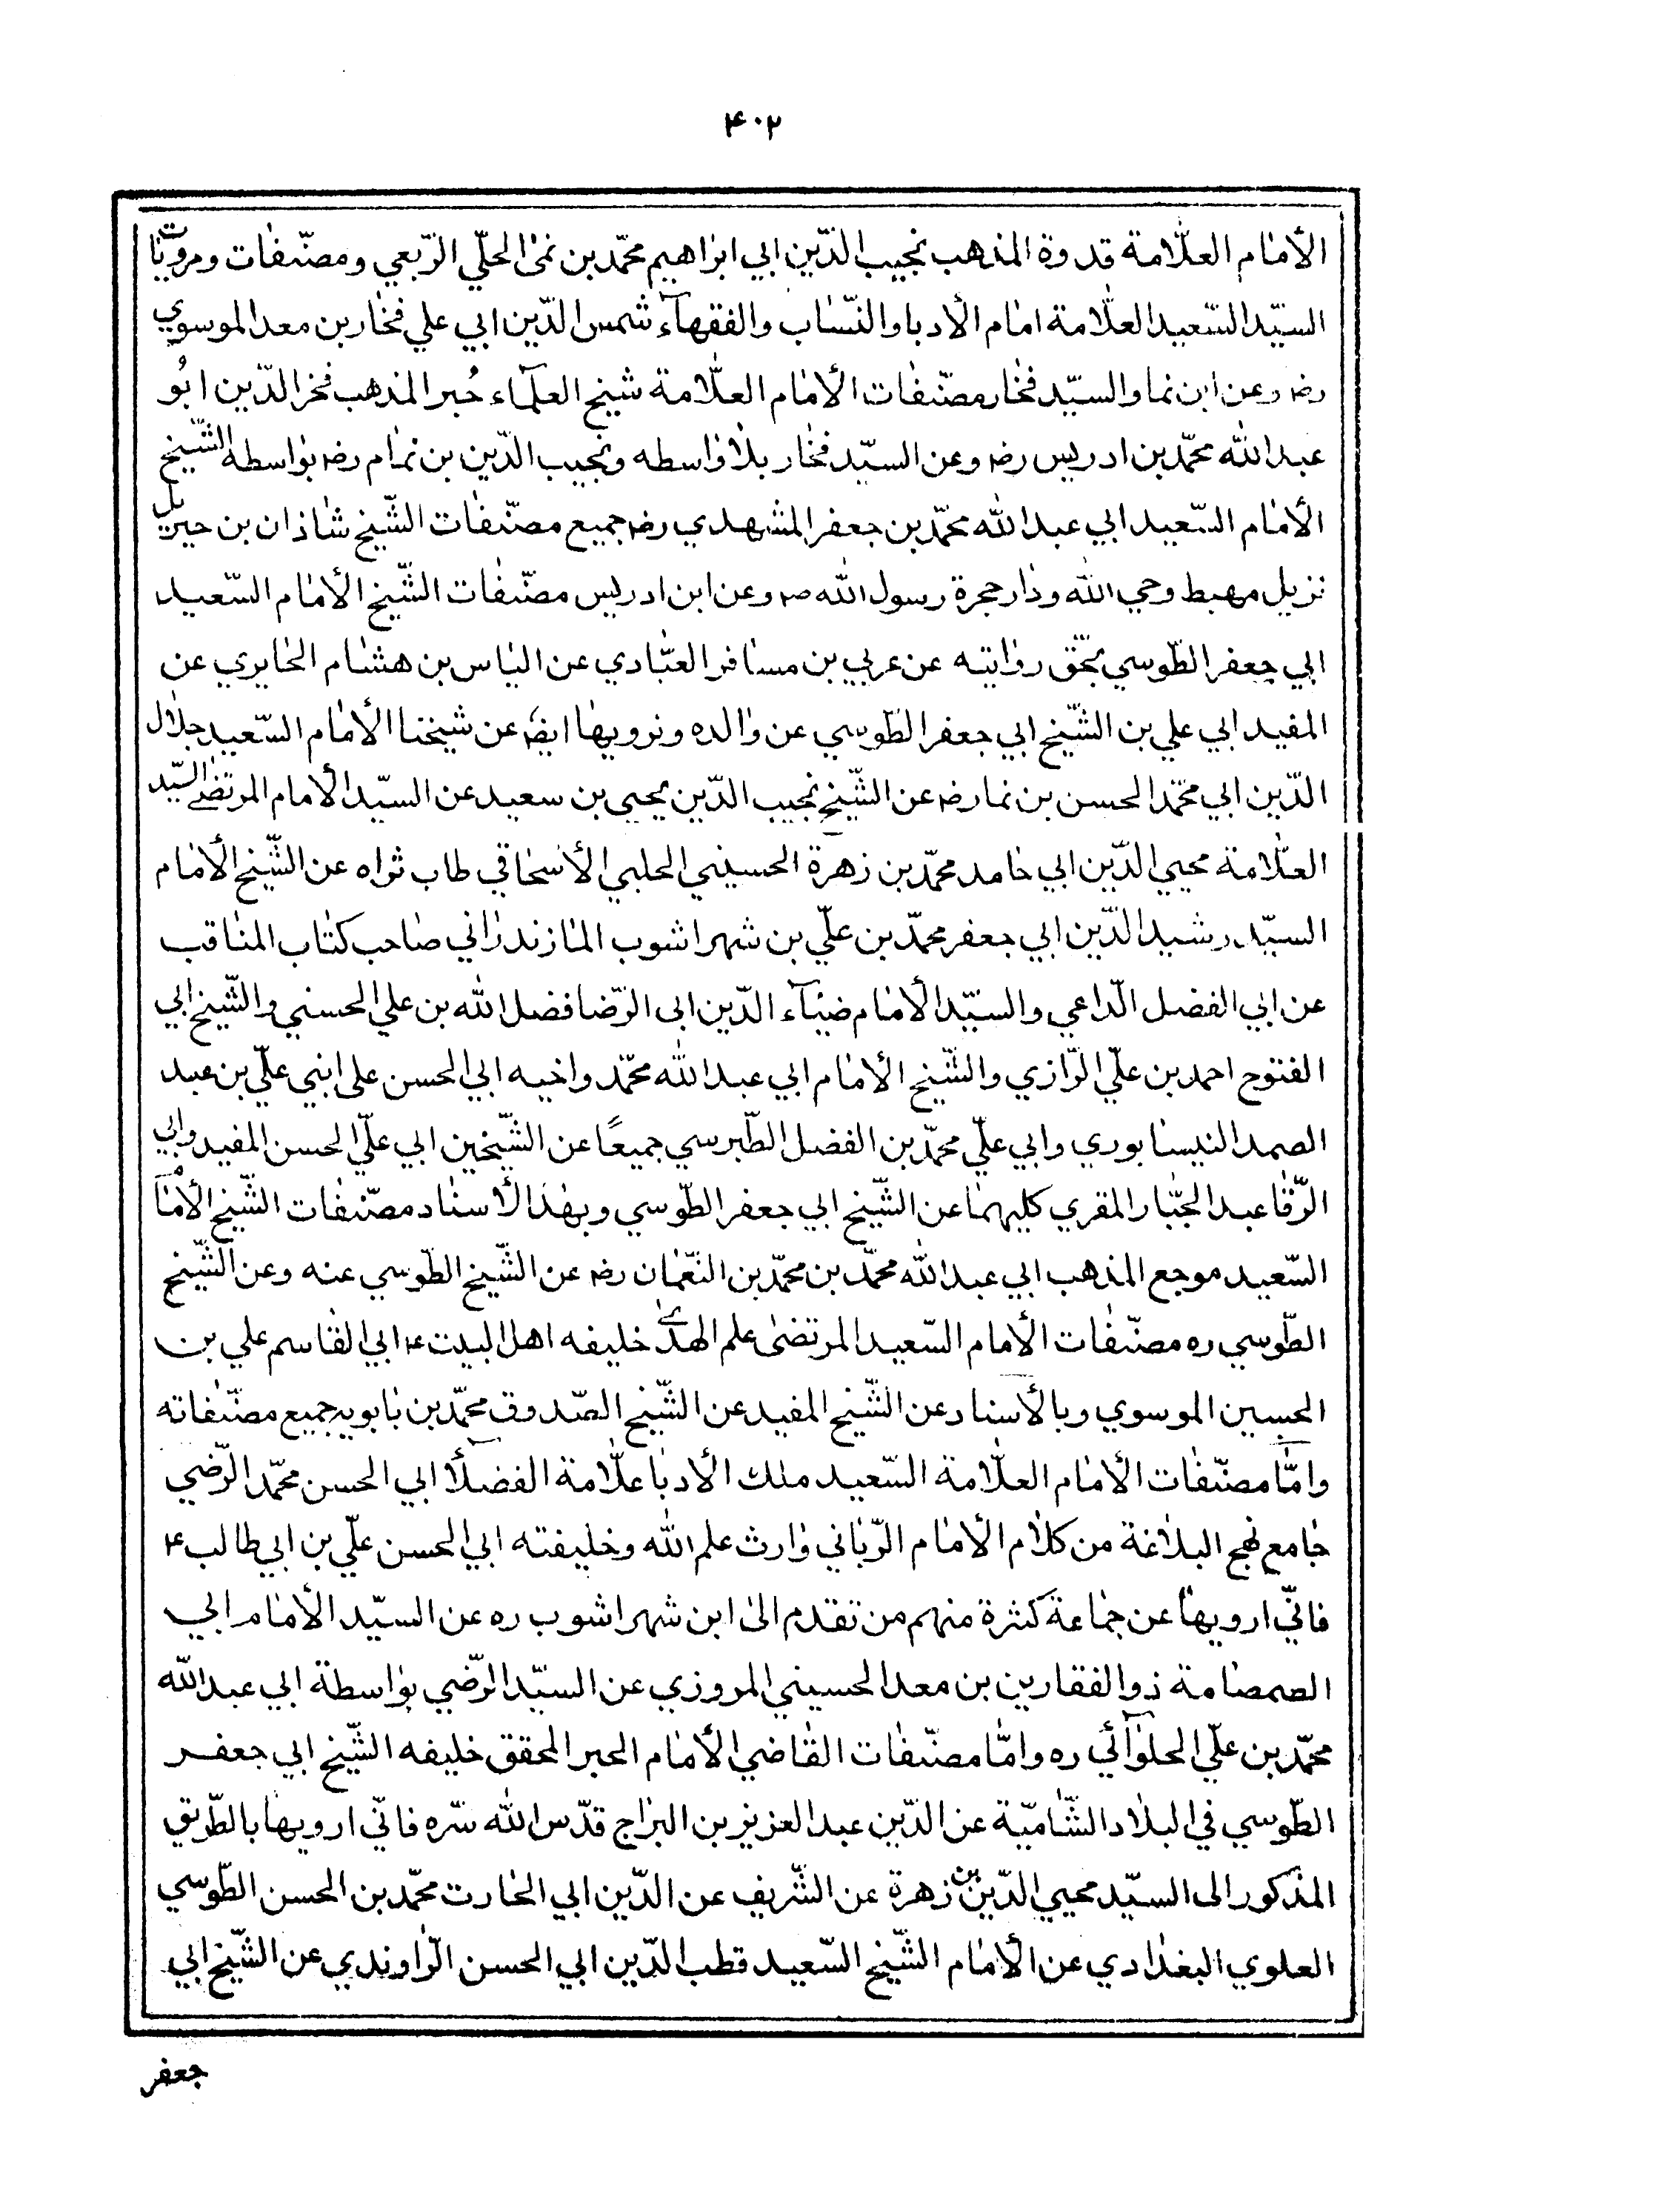 ۴۰۲
الأمام العلّامة قدوة المذهب نجيب الدّين ابي ابراهيم محمّد بن نمى الحلّي الرّبعي ومصنّفات ومرويّات
السيّد السّعيد العلّامة امام الأدبا والنّسّاب والفقهآء شمس الدّين ابي علي فخار بن معد الموسوي
رضه وعن ابن نما والسيّد فخار مصنّفات الأمام العلّامة شيخ العلمآء حُبر المذهب فخر الدّين ابُو
عبد الله محمّد بن ادريس رضه وعن السيّد فخار بلا واسطه ونجيب الدّين بن نمام رضه بواسطه الشّيخ
الأمام السّعيد ابي عبد الله محمّد بن جعفر المشهدي رضه جميع مصنّفات الشّيخ شاذان بن جبريل
نزيل مهبط وحي الله ودار حجرة رسول الله صه وعن ابن ادريس مصنّفات الشّيخ الأمام السّعيد
ابي جعفر الطّوسي بحّق روايته عن عربي بن مسافر العبّادي عن الياس بن هشام الحايري عن
المفيد ابي علي بن الشّيخ ابي جعفر الطّوسي عن والده ونرويها ايضه عن شيخنا الأمام السّعيد جلال
الدّين ابي محمّد الحسن بن نما رضه عن الشّيخ نجيب الدّين يحيى بن سعيد عن السيّد الأمام المرتضى السيّد
العلّامة محيي الدّين ابي حامد محمّد بن زهرة الحسيني الحلبي الأسحاقي طاب ثراه عن الشّيخ الأمام
السيّد رشيد الدّين ابي جعفر محمّد بن علّي بن شهراشوب المازندراني صاحب كتاب المناقب
عن ابي الفضل الّداعي والسيّد الأمام ضيآء الدّين ابى الرّضا فضل الله بن علي الحسني والشّيخ ابي
الفتوح احمد بن علّي الرّازي والشّيخ الأمام ابي عبد الله محمّد واخيه ابي الحسن على ابني علّي بن عبد
الصمد النيسابوري وابي علّي محمّد بن الفضل الطّبرسي جميعًا عن الشّيخين ابي علّي الحسن المفيد وابي
الرّقا عبد الجّبار المقري كليهما عن الشّيخ ابي جعفر الطّوسي وبهذا الأسناد مصنّفات الشّيخ الأمام
السّعيد موجع المذهب ابي عبد الله محمّد بن محمّد بن النّعمان رضه عن الشّيخ الطّوسي عنه وعن الشّيخ
الطّوسي ره مصنّفات الأمام السّعيد المرتضى علم الهدى خليفه اهل البيت ع ابي القاسم علي بن
الحسين الموسوي وبالأسناد عن الشّيخ المفيد عن الشّيخ الصّدوق محمّد بن بابويه جميع مصنّفاته
وامّا مصنّفات الأمام العلّامة السّعيد ملك الأدبا علّامة الفضلآ ابي الحسن محمّد الرّضي
جامع نهج البلاغة من كلام الأمام الرّباني وارث علم الله وخليفته ابي الحسن علّي بن ابي طالب ع
فانّي ارويها عن جماعة كثرة منهم من تقدم الى ابن شهراشوب ره عن السيّد الأمام ابي
الصمصامة ذو الفقارين بن معد الحسيني المروزي عن السيّد الرّضي بواسطة ابي عبد الله
محمّد بن علّي الحلوآئي ره وامّا مصنّفات القاضي الأمام الحبر المحقق خليفه الشّيخ ابي جعفر
الطّوسي في البلاد الشّاميّة عن الدّين عبد العزيز بن البرّاج قدّس الله سّره فانّي ارويها بالطّريق
المذكور الى السيّد محيي الدّين بن زهرة عن الشّريف عن الدّين ابي الحارث محمّد بن الحسن الطّوسي
العلوي البغدادي عن الأمام الشّيخ السّعيد قطب الدّين ابي الحسن الرّاوندي عن الشّيخ ابي
جعفر